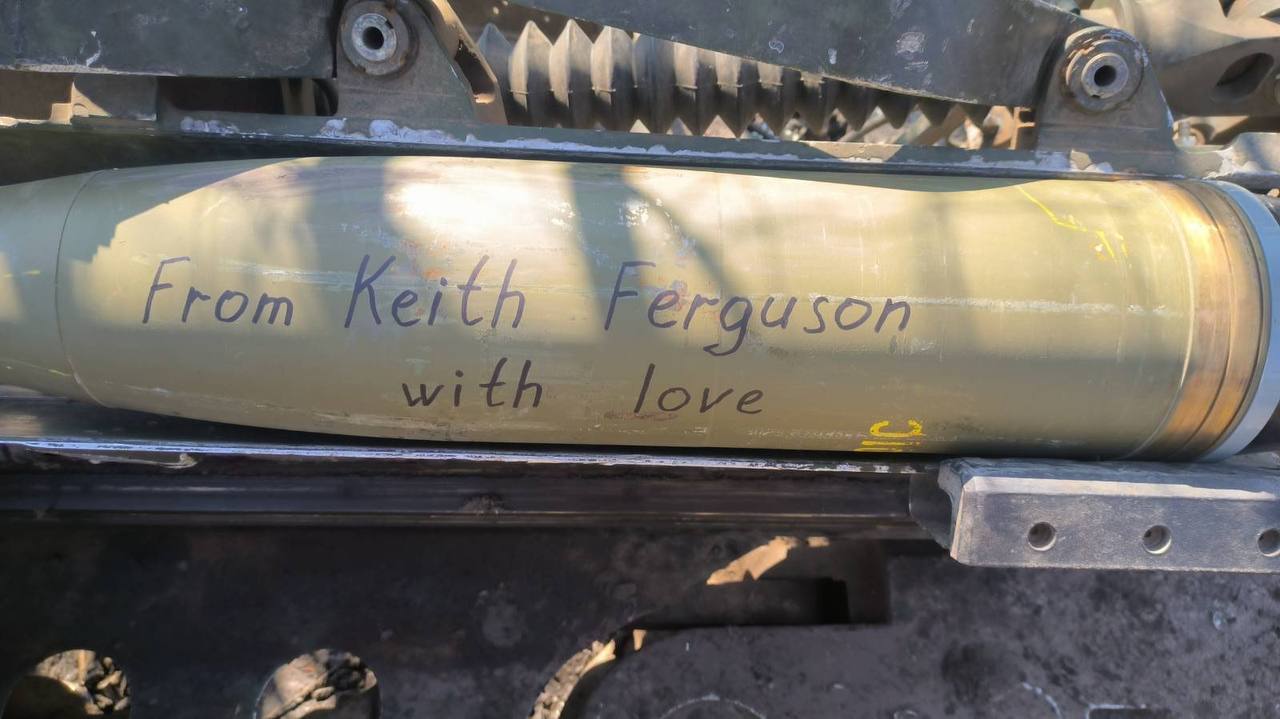 From Keith Ferguson
with love